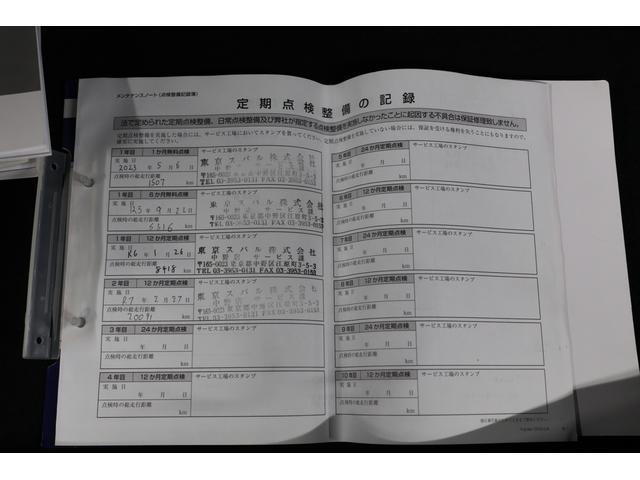 メンテナンスノート(点検整備記録簿)
定期点検整備の記録
法で定められた定期点検整備、日常点検整備及び弊社が指定する点検整備を実施しなかったことに起因する不具合は保証修理致しません。
定期点検整備を実施した場合には、サービス工場においてスタンプを貰ってください。定期点検整備を実施していない場合には、保証を受ける権利を失うこともなりますので、
確実に実施してください。
1年目 1か月無料点検 サービス工場のスタンプ
実施日
2023年5月6日
点検時の総走行距離
1507 km
東京スバル株式会社
TEL 03-3953-0131 FAX 03-3953-0150
1年目 6か月無料点検 サービス工場のスタンプ
実施日
点検時の総走行距離
5516 km
東京スバル株式会社
〒165-0023 東京都中野区江原町3-5-3
1年目 12か月定期点検 サービス工場のスタンプ
実施日
R6年1月28日
点検時の総走行距離
8418 km
東京スバル株式会社
中野店 サービス課
〒165-0023 東京都中野区江原町3-5-3
TEL.03-3953-0131 FAX 03-3953-0150
2年目 12か月定期点検 サービス工場のスタンプ
実施日
R7年2月27日
点検時の総走行距離
20091 km
東京スバル株式会社
中野店 サービス課
〒165-0023 東京都中野区江原町3-5-3
TEL.03-3953-0131 FAX 03-3953-0150
3年目 24か月定期点検 サービス工場のスタンプ
実施日
年 月 日
点検時の総走行距離
km
4年目 12か月定期点検 サービス工場のスタンプ
実施日
年 月 日
点検時の総走行距離
km
5年目 24か月定期点検 サービス工場のスタンプ
実施日
年 月 日
点検時の総走行距離
km
6年目 12か月定期点検 サービス工場のスタンプ
実施日
年 月 日
点検時の総走行距離
km
7年目 24か月定期点検 サービス工場のスタンプ
実施日
年 月 日
点検時の総走行距離
km
8年目 12か月定期点検 サービス工場のスタンプ
実施日
年 月 日
点検時の総走行距離
km
9年目 24か月定期点検 サービス工場のスタンプ
実施日
年 月 日
点検時の総走行距離
km
10年目 12か月定期点検 サービス工場のスタンプ
実施日
年 月 日
点検時の総走行距離
km